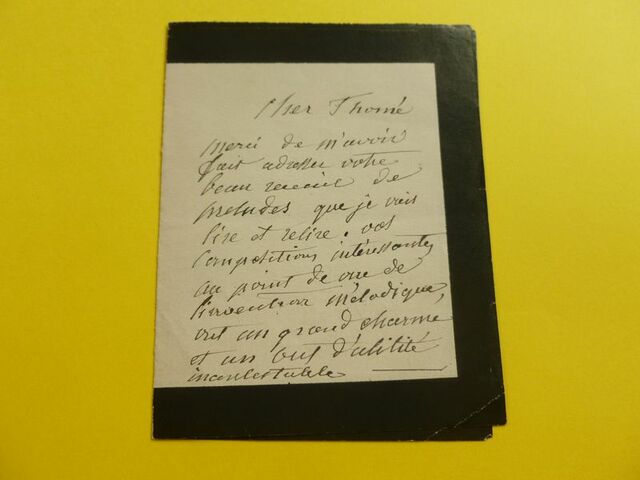 cher Thomé
merci de m'avoir
fait adresser votre
beau recueil de
préludes que je vais
lire et relire. vos
compositions intéressantes
au point de vue de
l'invention mélodique,
ont un grand charme
et un but d'utilité
incontestable